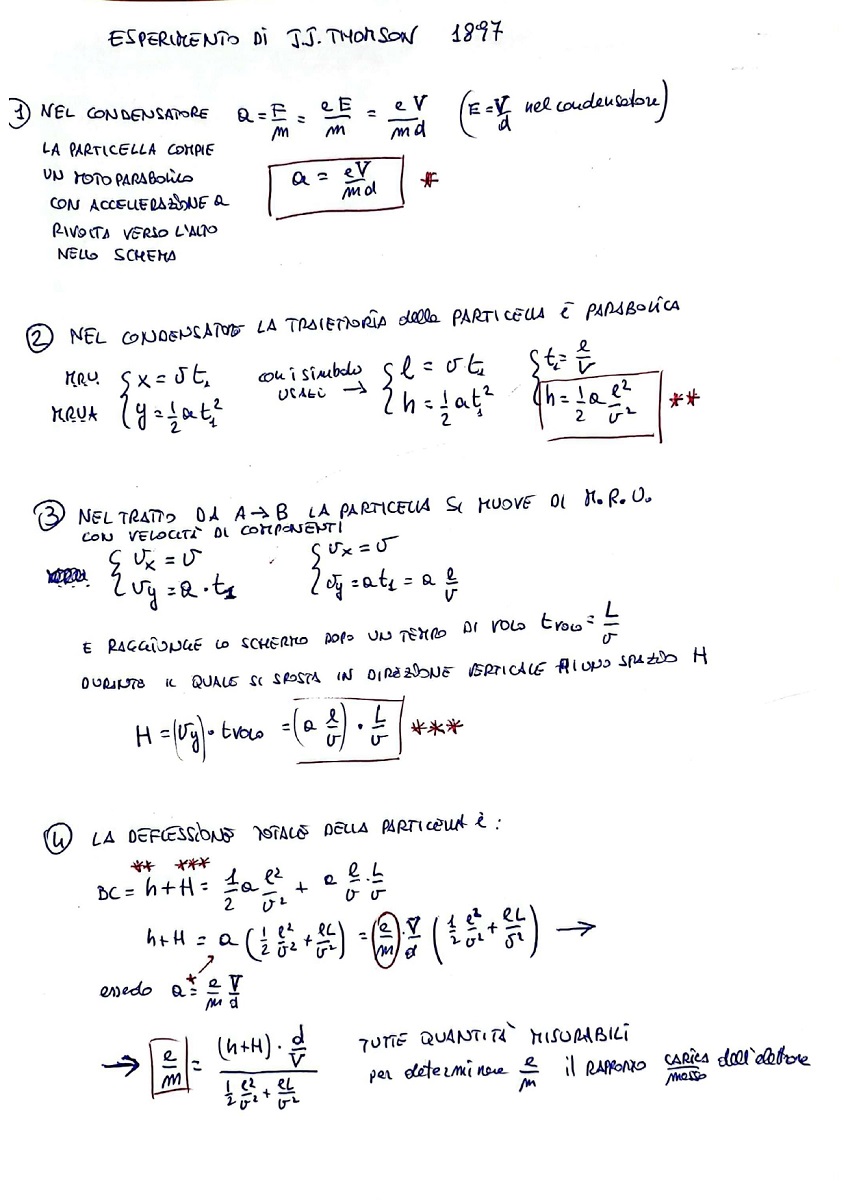 ESPERIMENTO DI J.J. THOMSON 1897
① NEL CONDENSATORE a = F/m = eE/m = eV/md (E = V/d nel condensatore)
LA PARTICELLA COMPIE
UN MOTO PARABOLICO a = eV/md *
CON ACCELERAZIONE a
RIVOLTA VERSO L'ALTO
NELLO SCHEMA
② NEL CONDENSATORE LA TRAIETTORIA della PARTICELLA È PARABOLICA
MRU. { x = v t₁ con i simboli { l = v t₁ { t₁ = l/v
MRUA { y = 1/2 a t₁² USATI → { h = 1/2 a t₁² { h = 1/2 a l²/v² **
③ NEL TRATTO DA A → B LA PARTICELLA SI MUOVE DI M.R.U.
CON VELOCITÀ DI COMPONENTI
{ vx = v { vx = v
{ vy = a · t₁ { vy = a t₁ = a l/v
E RAGGIUNGE LO SCHERMO DOPO UN TEMPO DI VOLO t volo = L/v
DURANTE IL QUALE SI SPOSTA IN DIREZIONE VERTICALE DI UNO SPAZIO H
H = (vy) · t volo = (a l/v) · L/v ***
④ LA DEFLESSIONE TOTALE DELLA PARTICELLA È :
** ***
BC = h + H = 1/2 a l²/v² + a l/v · L/v
h + H = a (1/2 l²/v² + lL/v²) = (e/m) · V/d (1/2 l²/v² + lL/v²) →
essedo a *= e/m V/d
→ e/m = (h+H) · d/V / (1/2 l²/v² + lL/v²) TUTTE QUANTITÀ MISURABILI
per determinare e/m il RAPPORTO CARICA/massa dell'elettrone